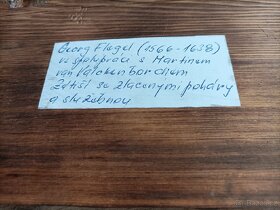 Georg Flegel (1566-1638)
ve spolupráci s Martinem
van Valckenborchem
Zátiší se zlacenými poháry
a služebnou